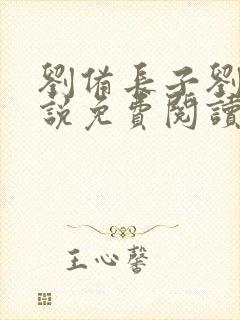 劉備長子劉
說免費閱讀
王心馨